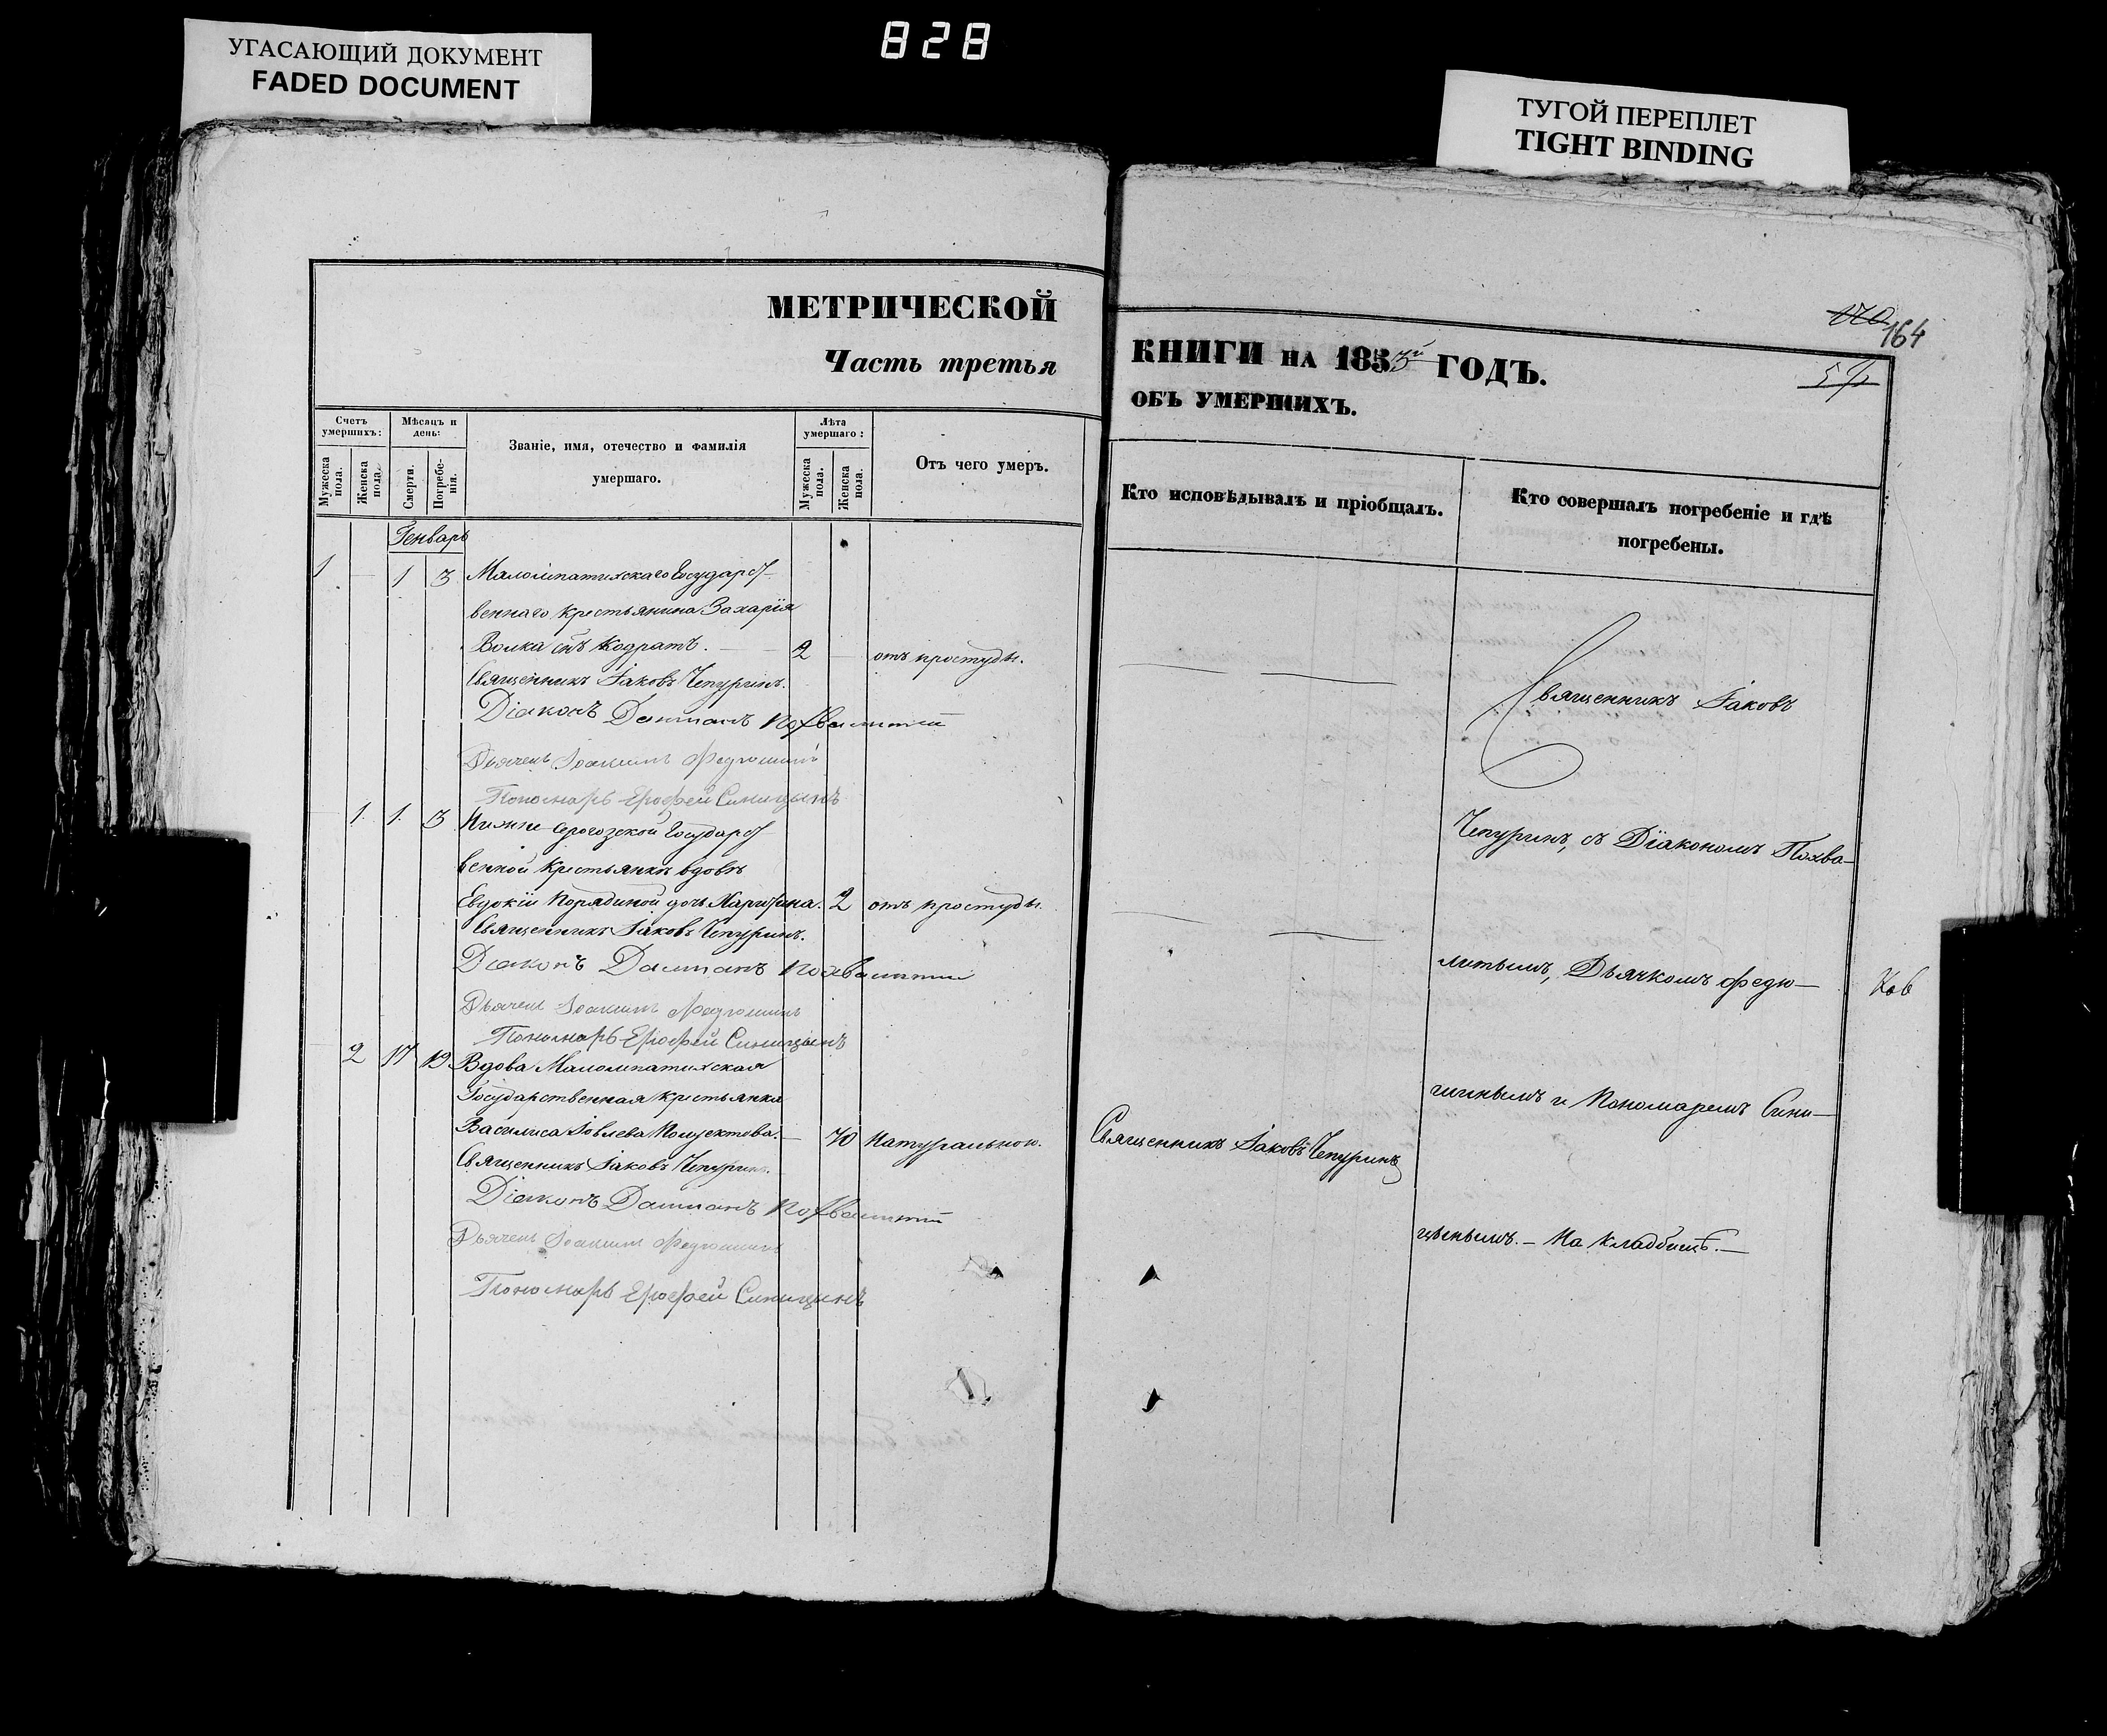 828
УГАСАЮЩИЙ ДОКУМЕНТ
FADED DOCUMENT
ТУГОЙ ПЕРЕПЛЕТ
TIGHT BINDING
МЕТРИЧЕСКОЙ
Часть третья
Счетъ умершихъ:
Мужеска пола.
Женска пола.
Мѣсяцъ и день:
Смерти.
Погребенія.
Званіе, имя, отечество и фамилія
умершаго.
Лѣта умершаго:
Мужеска пола.
Женска пола.
Отъ чего умеръ.
Генварь
1 — 1 3 Малолепатихскаго Государст-
веннаго крестьянина Захарія
Волка сынъ Кодратъ. — 2 — отъ простуды.
Священникъ Іаковъ Чепуринъ.
Діаконъ Даміанъ Похвалитый
Дьячекъ Іоакимъ Федюшинъ
Пономарь Ерофей Синицынъ
1 1 3 Нижне-Серогозской Государст-
венной крестьянки вдовы
Евдокіи Порядиной дочь Харитина. 2 отъ простуды.
Священникъ Іаковъ Чепуринъ.
Діаконъ Даміанъ Похвалитый
Дьячекъ Іоакимъ Федюшинъ
Пономарь Ерофей Синицынъ
2 17 19 Вдова Малолепатихская
Государственная крестьянка
Василиса Іовлева — 70 Натуральною.
Священникъ Іаковъ Чепуринъ.
Діаконъ Даміанъ Похвалитый
Дьячекъ Іоакимъ Федюшинъ
Пономарь Ерофей Синицынъ
164
КНИГИ НА 1853й ГОДЪ.
ОБЪ УМЕРШИХЪ.
Кто исповѣдывалъ и пріобщалъ.
Кто совершалъ погребеніе и гдѣ
погребены.
Священникъ Іаковъ
Чепуринъ, съ Діакономъ Похва-
литымъ, Дьячкомъ Федю-
шинымъ и Пономаремъ Сини-
Священникъ Іаковъ Чепуринъ
цынымъ. — На кладбищѣ. —